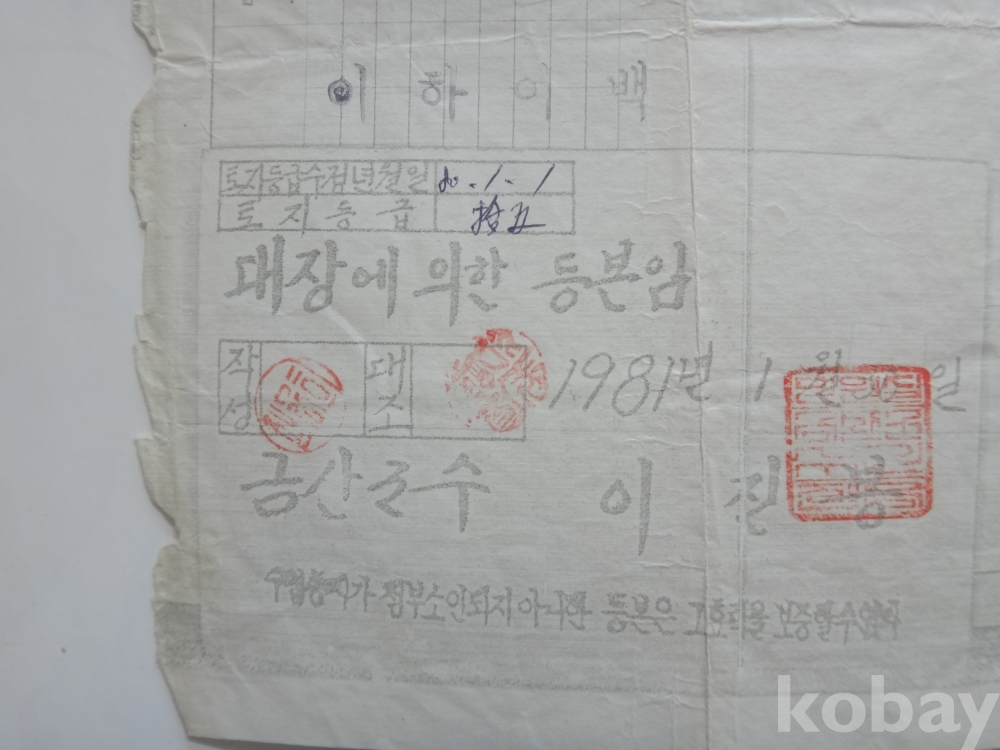 이하여백
토지등급수정년월일 80.1.1
토지등급 拾五
대장에 의한 등본임
작성 대조 1981년 1월 일
금산군수 이진봉
수입증지가 첨부소인되지아니한 등본은 그효력을 보증할수없다
kobay